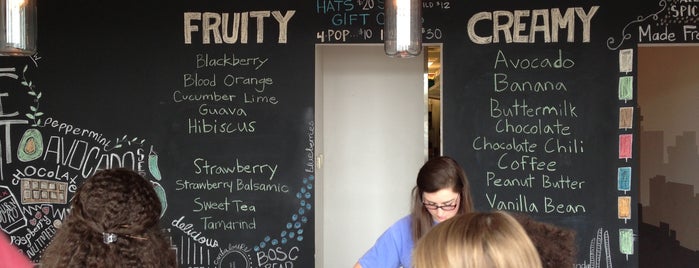 FRUITY
Blackberry
Blood Orange
Cucumber Lime
Guava
Hibiscus
Strawberry
Strawberry Balsamic
Sweet Tea
Tamarind
HATS $20
GIFT
4-POP
$30
CREAMY
Avocado
Banana
Buttermilk
Chocolate
Chocolate Chili
Coffee
Peanut Butter
Vanilla Bean
SPIC
Made Fre
peppermint
AVOCADO
CHOCOLATE
Raspberry
NUTMEG
blueberries
delicious
cantaloupe
BOSC
PEAR